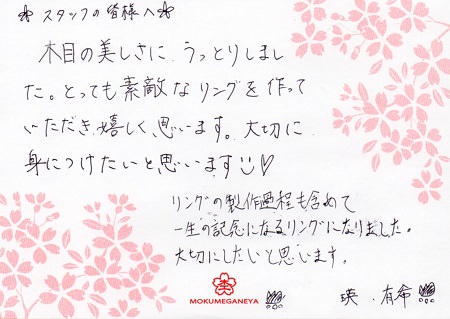 スタッフの皆様へ
木目の美しさに、うっとりしまし
た。とっても素敵なリングを作って
いただき、嬉しく思います。大切に
身につけたいと思います
リングの製作過程も含めて
一生の記念になるリングになりました。
大切にしたいと思います。
MOKUMEGANEYA
瑛・有希